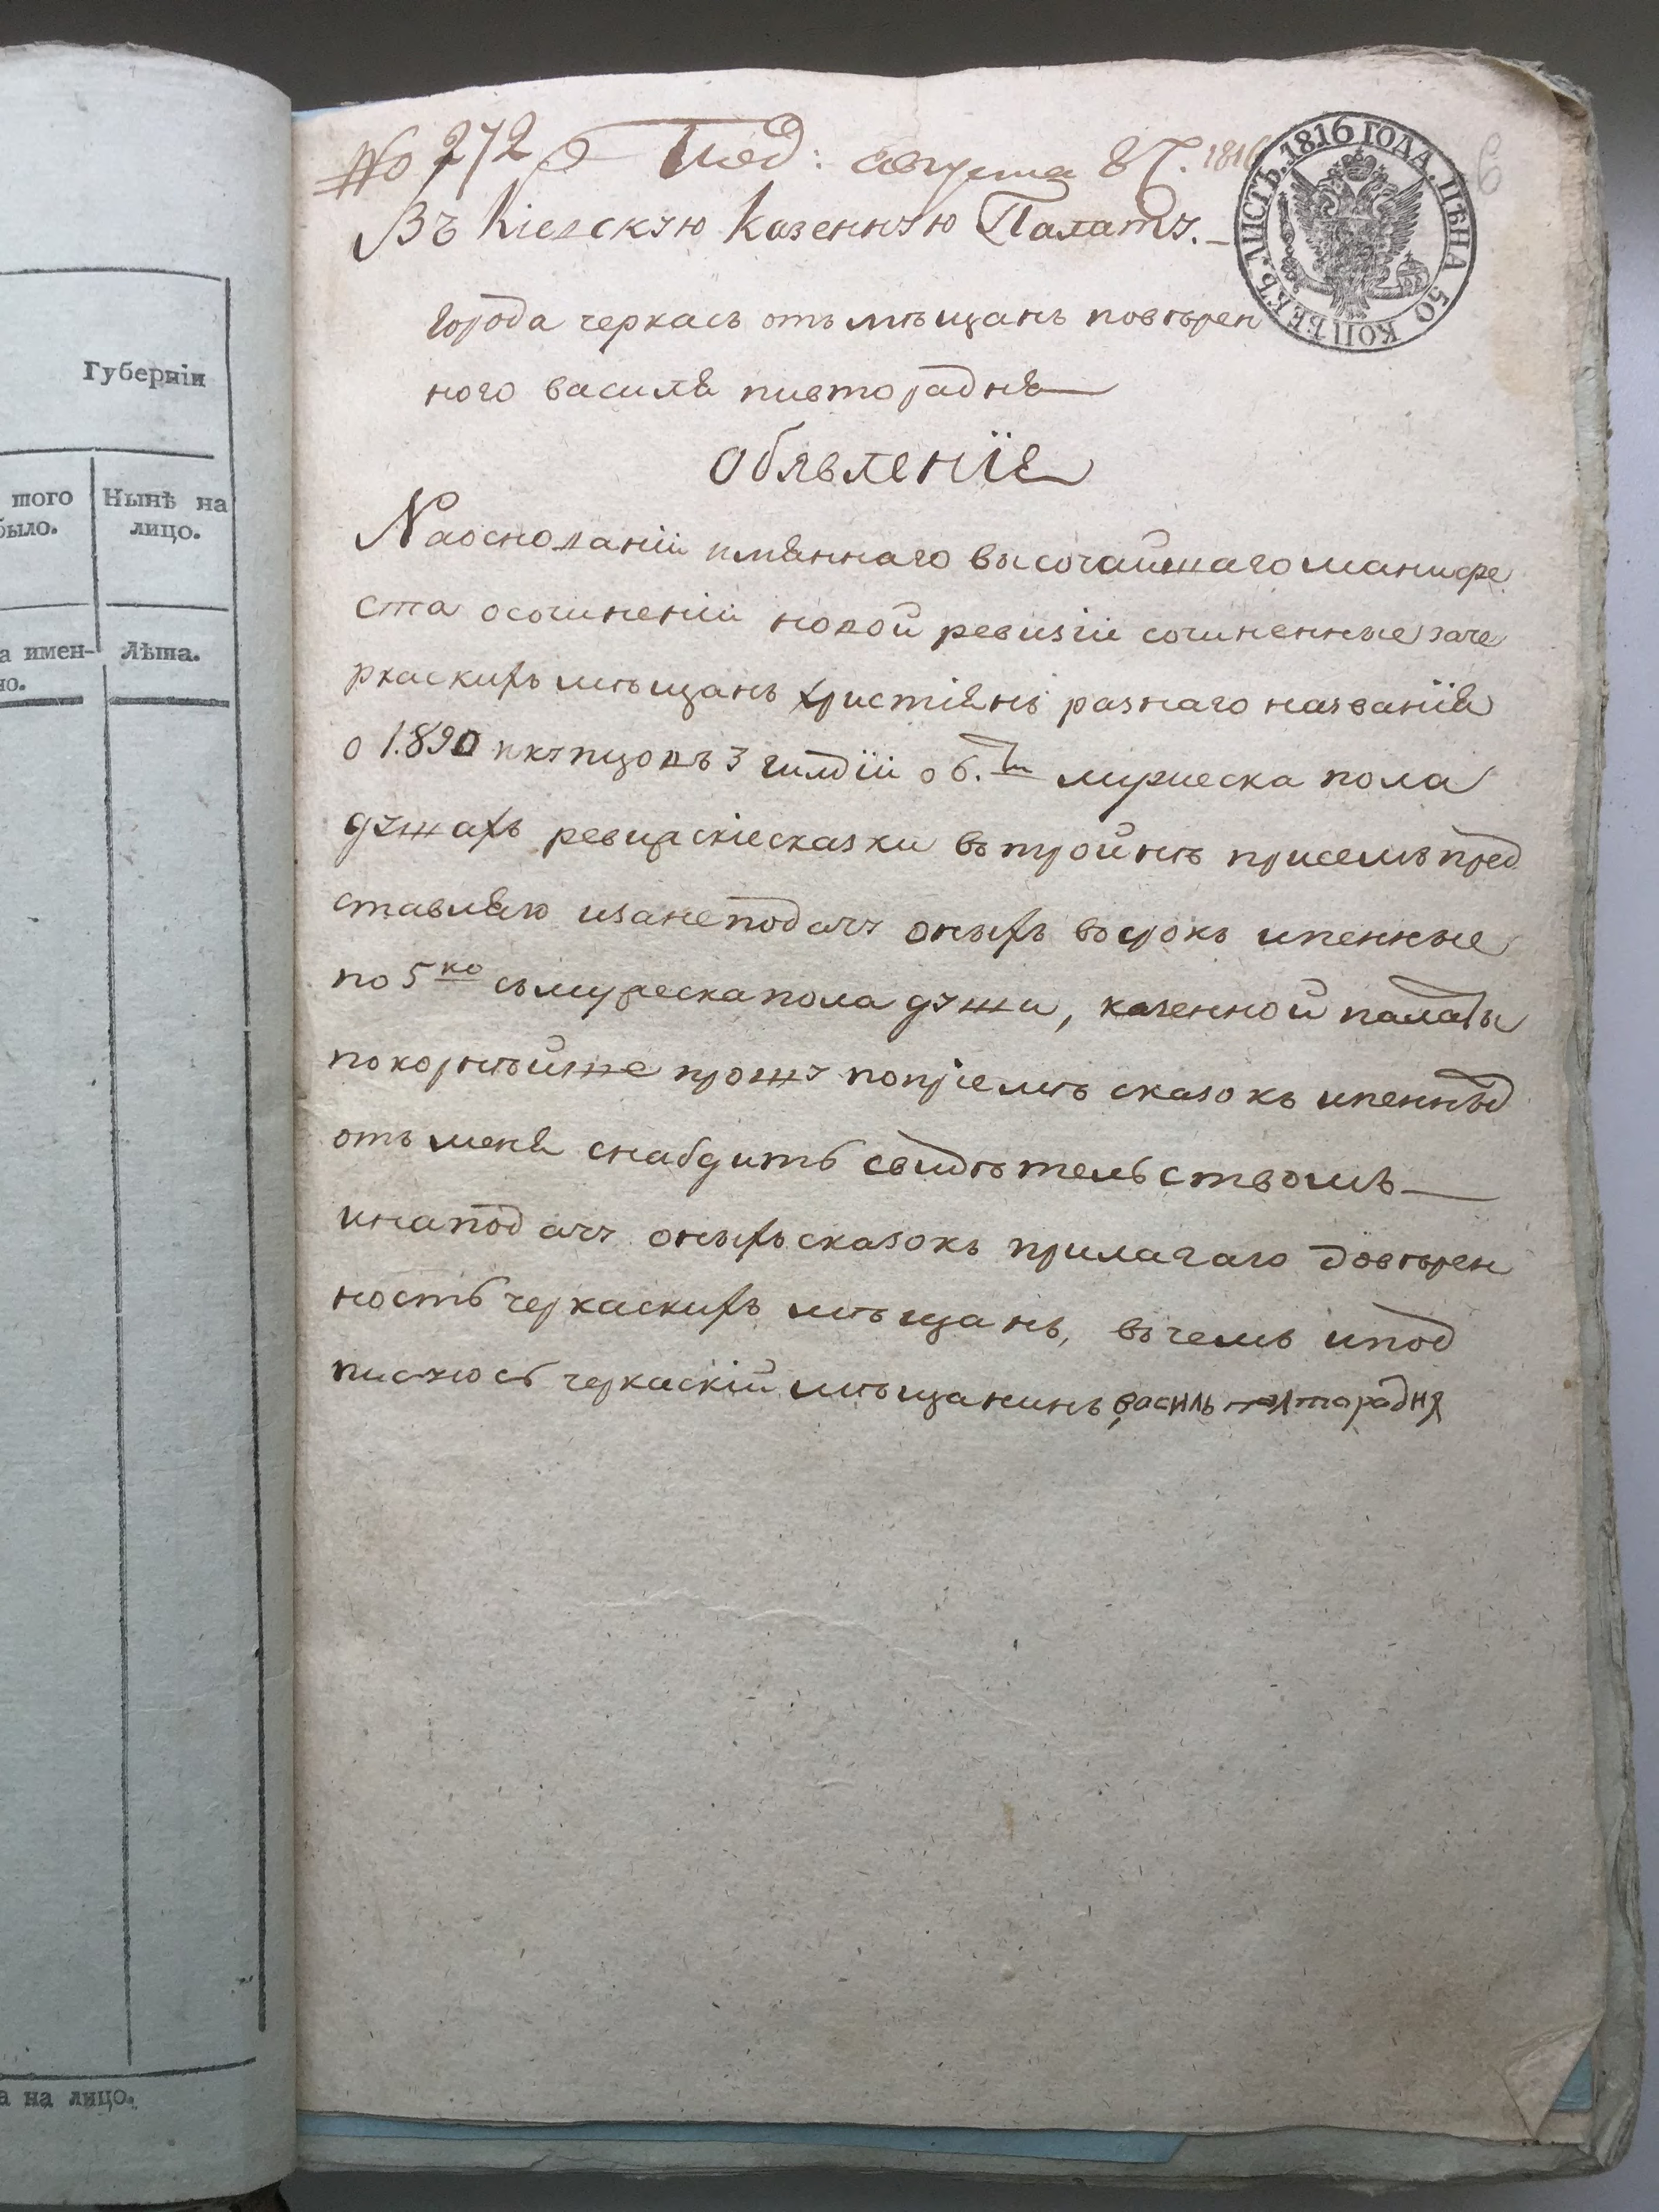 Губерніи
того
было.
Нынѣ на
лицо.
а имен-
но.
Лѣта.
а на лицо.
№ 272 Под: августа 8 1816
ЛИСТЪ. 1816 ГОДА. ЦѢНА 50 КОПѢЕКЪ.
Въ Кіевскую Казенную Палату.
Города черкасъ отъ мѣщанъ повѣрен
ного василя пивторадня
Обявленіе
Наоснованіи имяннаго высочайшаго манифе
ста осочиненіи новой ревизіи сочиненные заче
ркаскихъ мѣщанъ христіянъ разнаго названія
о 1.890 икупцовъ 3 гилдіи о 6. ти мужеска пола
душахъ ревизскіе сказки въ тройнѣ присемъ пред
ставляю изанеподачу оныхъ въ срокъ ипенные
по 5 ко съ мужеска пола души, казенной палаты
покорнѣйше прошу попріемѣ сказокъ ипенныхъ
отъ меня снабдить свидѣтельствомъ
инаподачу оныхъ сказокъ прилагаю довѣрен
ность черкаскихъ мѣщанъ, въ чемъ ипод
писуюсь черкаскій мѣщанинъ василь полторадня